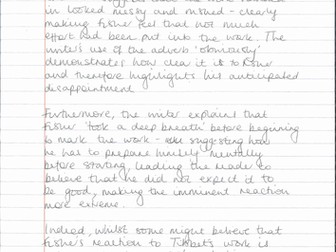 in looked messy and rushed - clearly
making Fisher feel that not much
effort had been put into the work. The
writer's use of the adverb 'obviously'
demonstrates how clear it is to Fisher
and therefore highlights his anticipated
disappointment.
Furthermore, the writer explains that
Fisher 'took a deep breath' before beginning
to mark the work - suggesting how
he has to prepare himself mentally
before starting, leading the reader to
believe that he did not expect it to
be good, making the imminent reaction
more extreme.
Indeed, whilst some might believe that
Fisher's reaction to Tibbet's work is